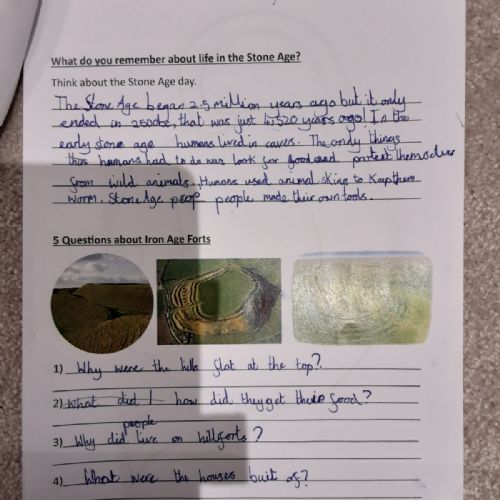 What do you remember about life in the Stone Age?
Think about the Stone Age day.
The Stone Age began 2.5 million years ago but it only
ended in 2500bc, that was just 4,520 years ago! In the
early stone age humans lived in caves. The only things
this humans had to do was look for food and protect themselves
from wild animals. Humans used animal skins to keep them
worm. Stone Age peop people made their own tools.
5 Questions about Iron Age Forts
1) Why were the hills flat at the top?
2) What did I how did they get their food?
people
3) Why did live on hillforts?
4) What were the houses buit of?